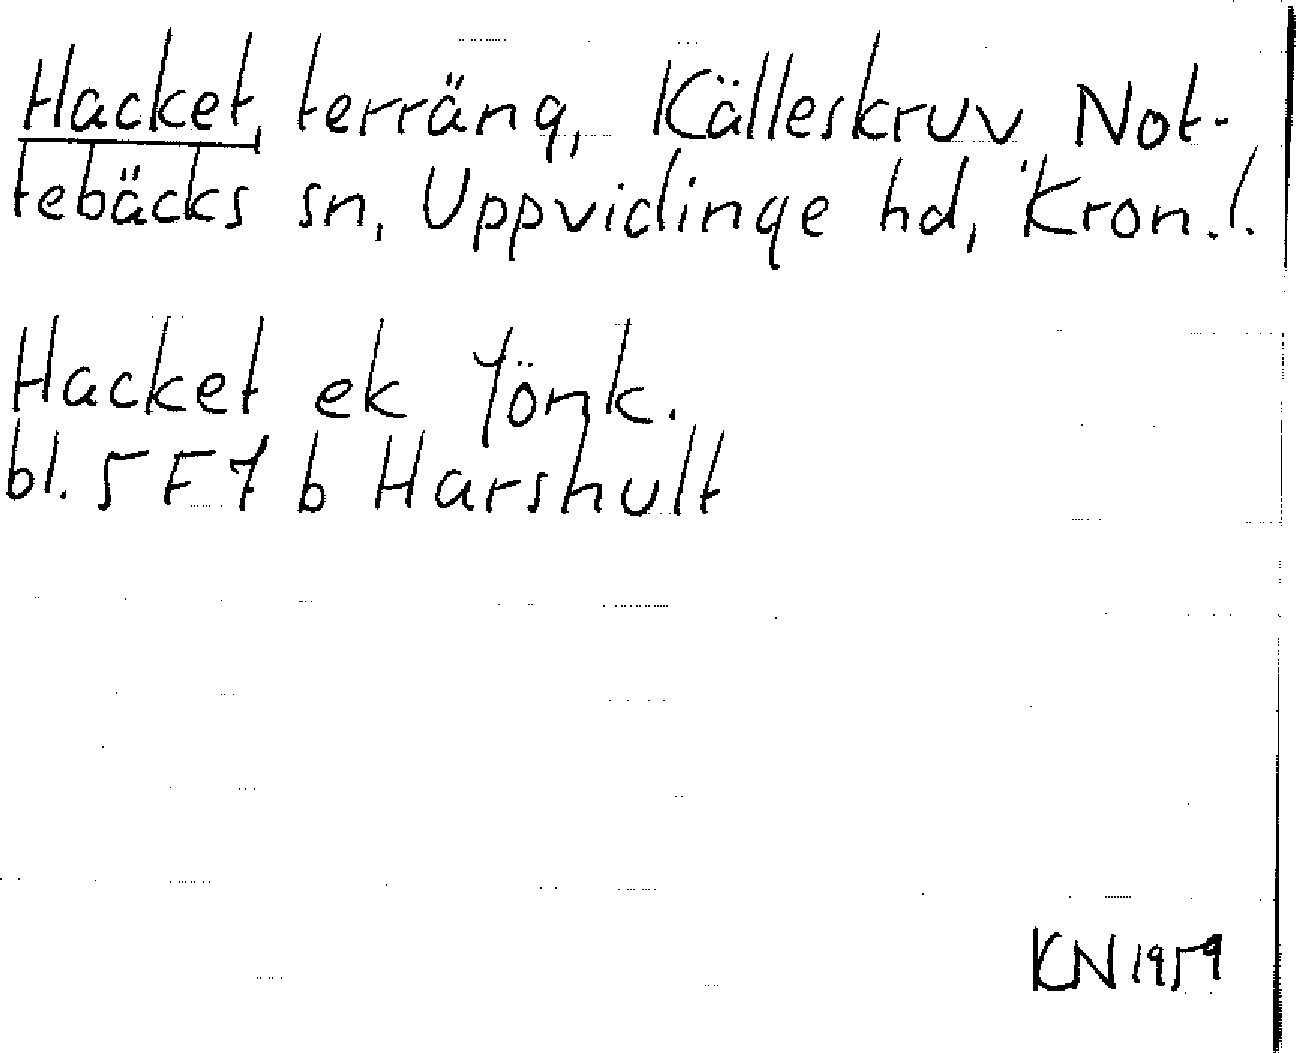 Hacket, terräng, Källeskruv Not-
tebäcks sn, Uppvidinge hd, Kron.l.
Hacket ek Jönk.
bl. 5 F 7 b Harshult
KN 1959